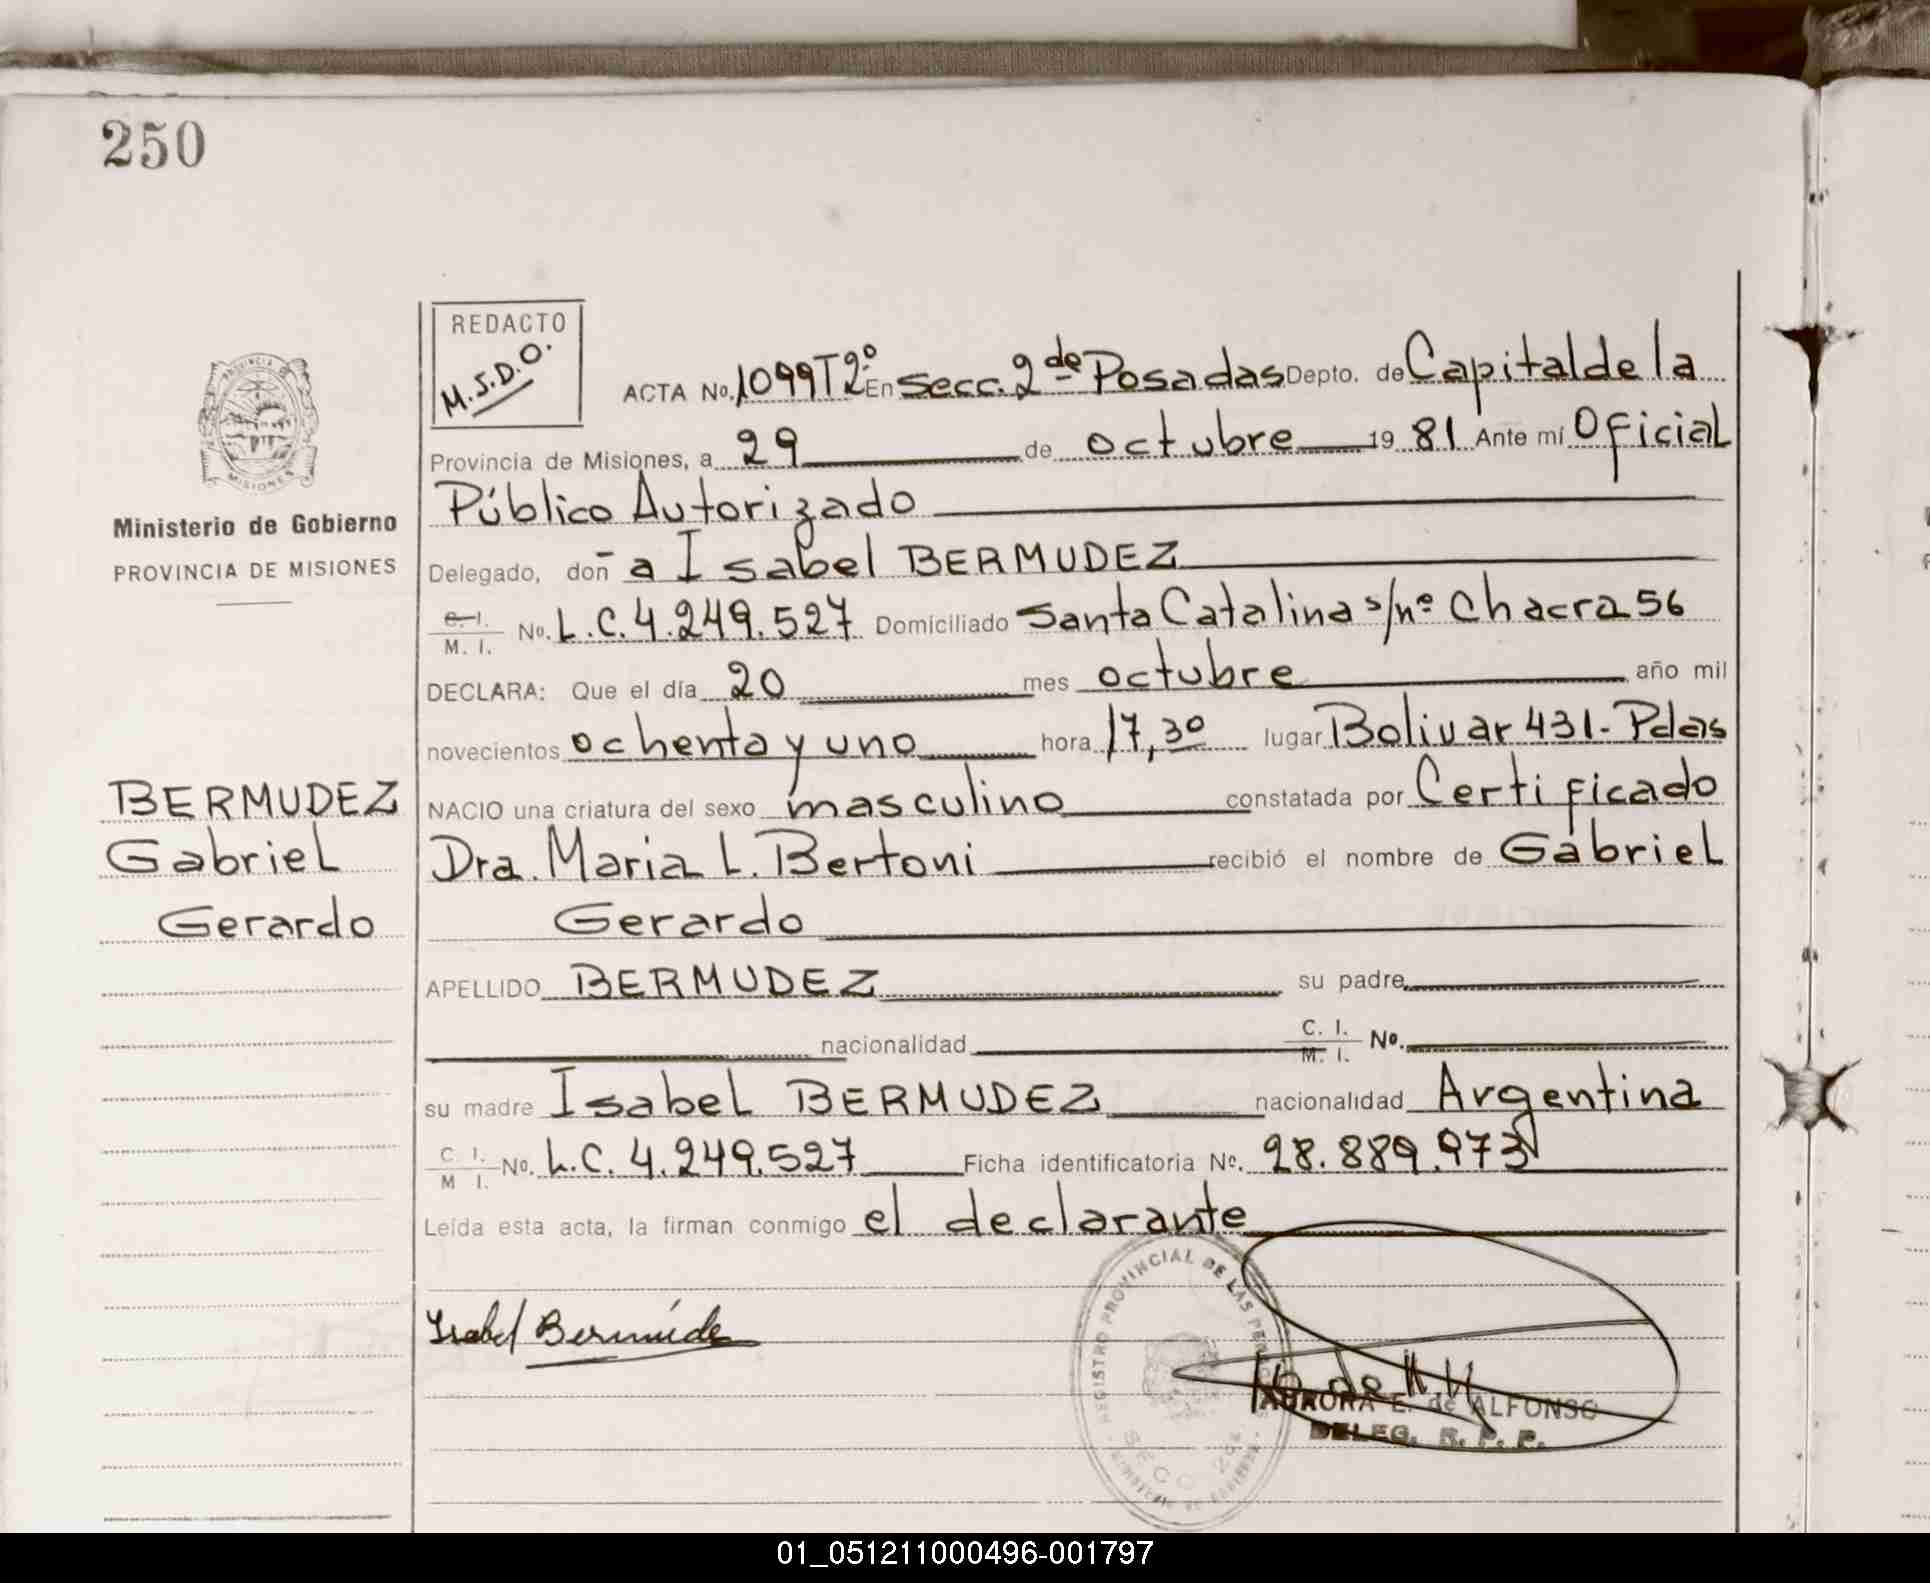 250
REDACTO
M.S.D.O.
ACTA No. 1099 T2º En Secc. 2de Posadas Depto. de Capital de la
Provincia de Misiones, a 29 de octubre 19 81 Ante mí Oficial
Público Autorizado
Delegado, doña Isabel BERMUDEZ
C. I.
M. I. No. L.C. 4.249.527 Domiciliado Santa Catalina s/nº Chacra 56
DECLARA: Que el día 20 mes octubre año mil
novecientos ochenta y uno hora 17,30 lugar Bolivar 431-Pdas
NACIO una criatura del sexo masculino constatada por Certificado
Dra. Maria L. Bertoni recibió el nombre de Gabriel
Gerardo
APELLIDO BERMUDEZ su padre
nacionalidad C. I.
M. I. No.
su madre Isabel BERMUDEZ nacionalidad Argentina
C. I.
M. I. No. L.C. 4.249.527 Ficha identificatoria Nº. 28.889.973
Leída esta acta, la firman conmigo el declarante
PROVINCIA DE
MISIONES
Ministerio de Gobierno
PROVINCIA DE MISIONES
BERMUDEZ
Gabriel
Gerardo
Isabel Bermúdez
REGISTRO PROVINCIAL DE LAS
AURORA E. de ALFONSO
DELEG. R. P. P.
01_051211000496-001797